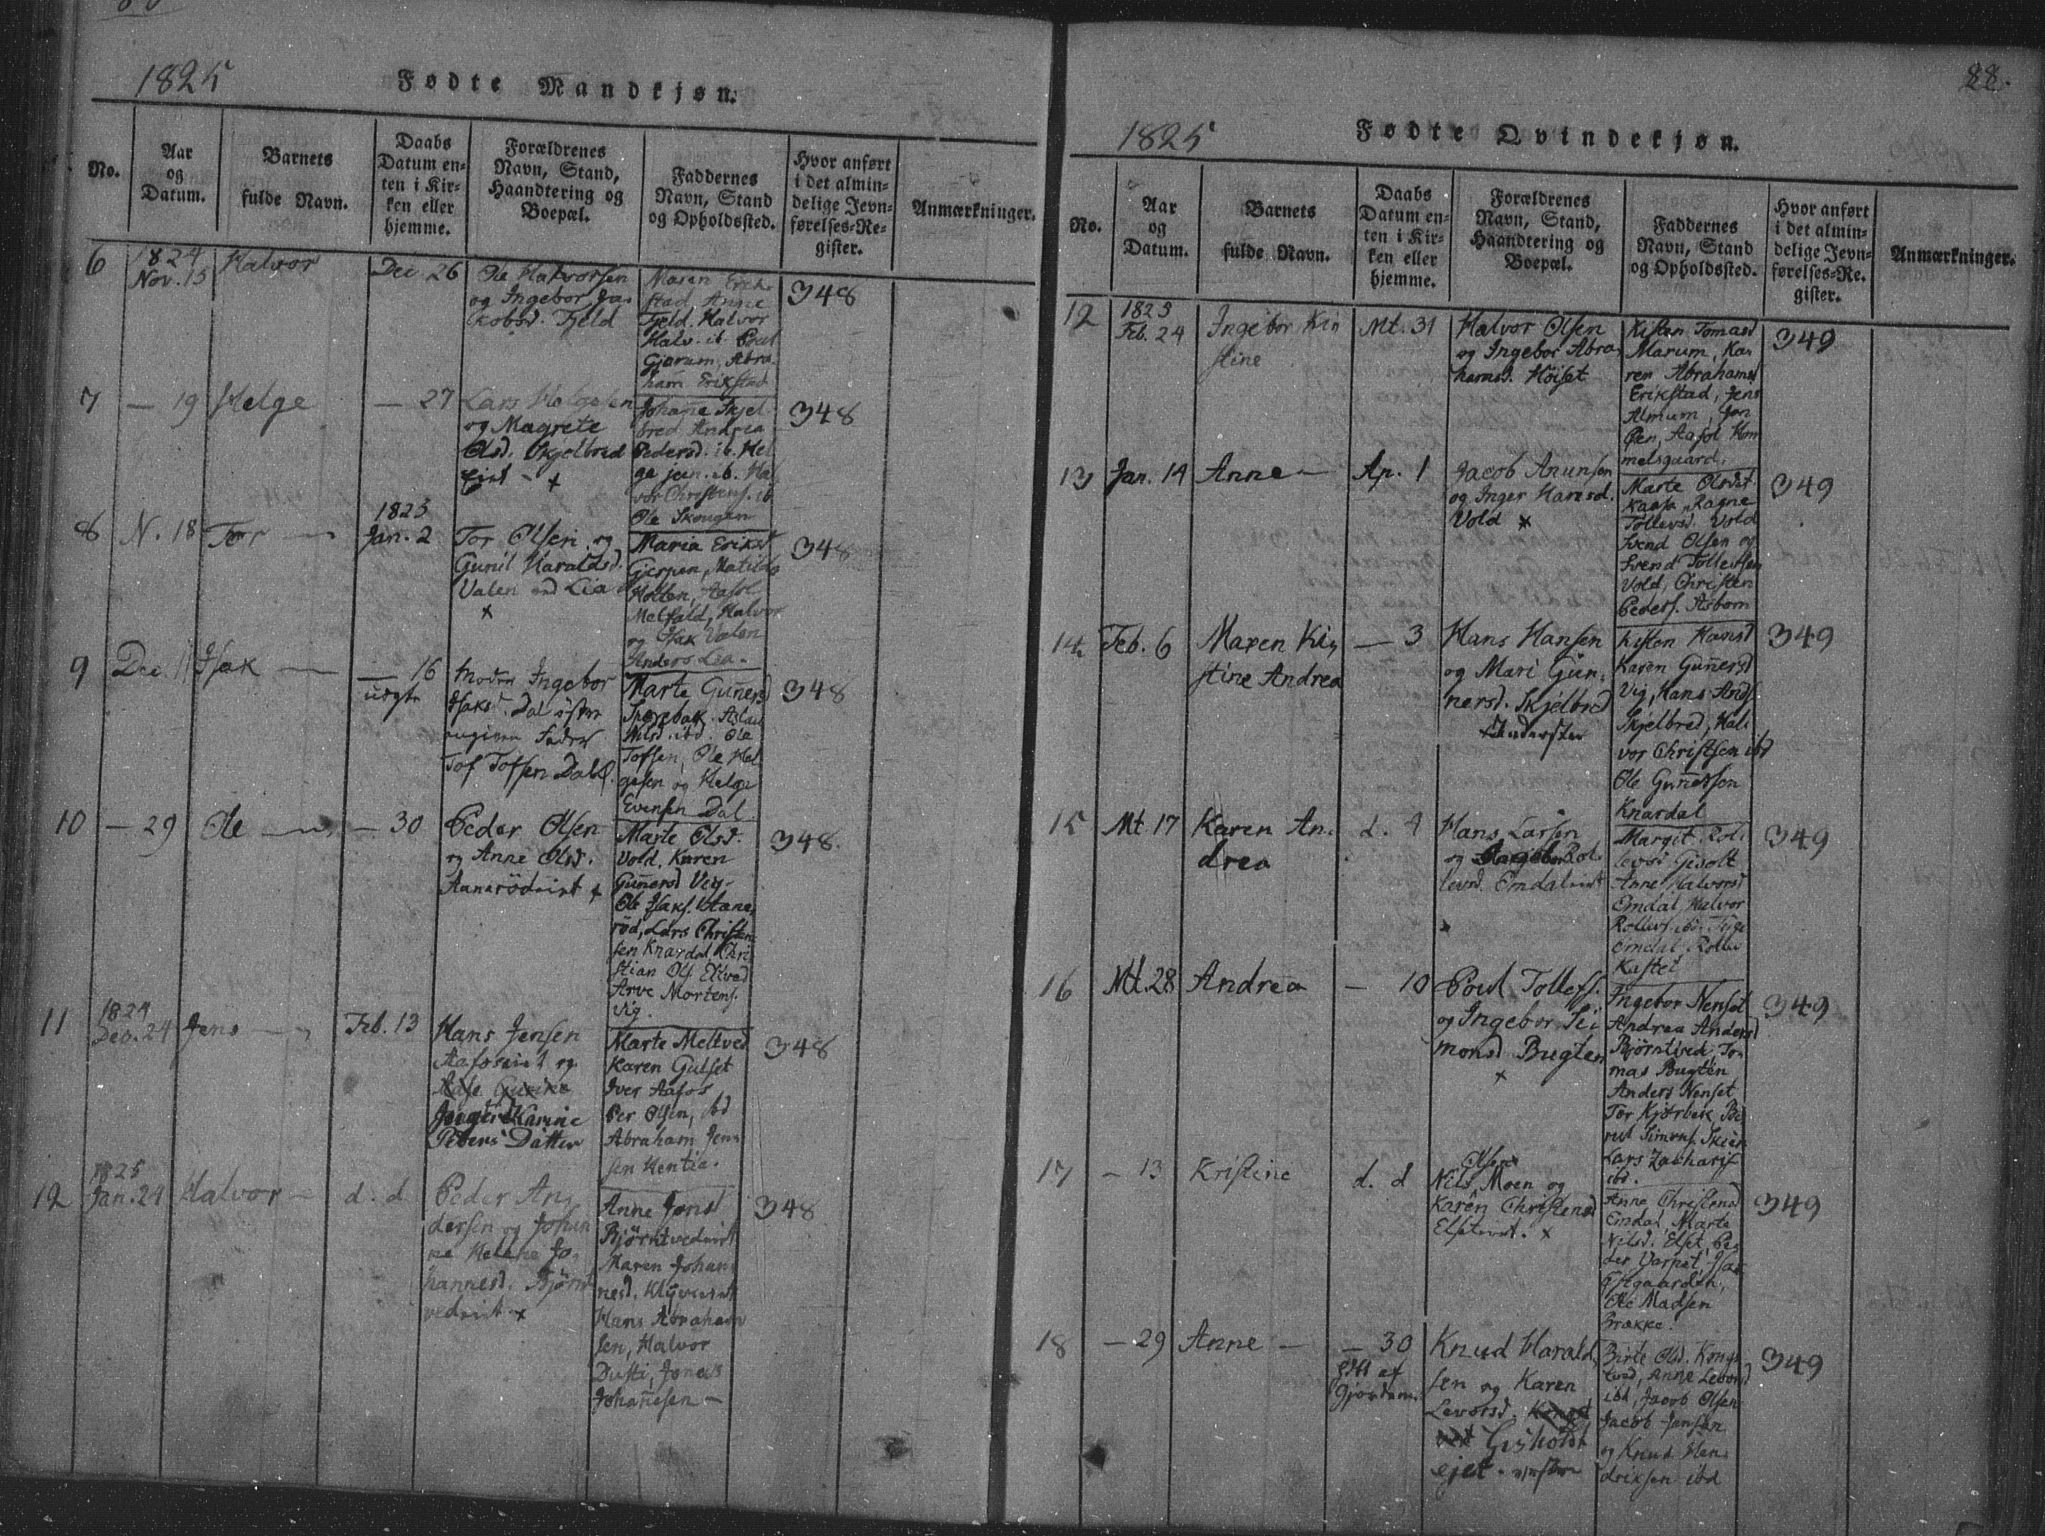 1825
Fødte Mandkjøn.
No.
Aar
og
Datum.
Barnets
fulde Navn.
Daabs
Datum en-
ten i Kir-
ken eller
hjemme.
Forældrenes
Navn, Stand,
Haandtering og
Boepæl.
Faddernes
Navn, Stand
og Opholdssted.
Hvor anført
i det almin-
delige Jevn-
førelses-Re-
gister.
Anmærkninger.
6
1824
Nov. 15
Halvor
Dec 26
Ole Halvorsen
og Ingebor Ja-
kobsd. Fjeld
Maren Erik-
stad, Anne
Fjeld, Halvor
Halv. ib. Poul
Gjerum, Abra-
ham Erikstad
348
7
— 19
Helge
— 27
Lars Helgesen
og Magrete
Olsd. Skjelbred
eiet - +
Johañe Skjel-
bred Andrea
Pedersd. ib. Hel-
ge jen. ib. Hal-
vor Christens. ib
Ole Skougen
348
8
N. 18
Tor
1825
Jan. 2
Tor Olsen og
Gunil Haraldsd.
Valen Lia
+
Maria Erikst
Gjerpen, Matilde
Holten, Aasol
Melfald, Halvor
og Isak Valen
Anders Lia.
348
9
Dec. 11
Isak
— 16
uægte
Moder Ingebor
Isaksd. Dal østre
angiven Fader
Tof Tofsen Dal
Marte Guñersd
Sperebak. Aslau
Nilsd. ibd. Ole
Tofsen, Ole Hel-
gesen og Helge
Evensen Dal
348
10
— 29
Ole
— 30
Peder Olsen
og Anne Olsd.
Aanerødeiet +
Marte Olsd.
Vold. Karen
Guñersd Vig-
Ole Isaks. Aane-
rød, Lars Christen
sen Knardal, Chri
stian Ols Eltved
Arve Mortens.
Vig.
348
11
1824
Dec. 24
Jens
Feb. 13
Hans Jensen
Aafoseiet og
Karine
Peders Datter
Marte Meltved
Karen Gulset
Iver Aafos
Per Olsen, ibd
Abraham Jen-
sen Kentia.
348
12
1825
Jan. 24
Halvor
d. d
Peder An-
dersen og Johan
ne Helene Jo-
hannesd. Bjørnt
vedeiet +
Anne Jensd
Bjørntvedeiet
Maren Johan-
nesd. Klyveeiet
Hans Abraham
sen, Halvor
Dusti, Jonas
Johañesen —
348
88.
1825
Fødte Qvindekjøn.
No.
Aar
og
Datum.
Barnets
fulde Navn.
Daabs
Datum en-
ten i Kir-
ken eller
hjemme.
Forældrenes
Navn, Stand,
Haandtering og
Boepæl.
Faddernes
Navn, Stand
og Opholdssted.
Hvor anført
i det almin-
delige Jevn-
førelses-Re-
gister.
Anmærkninger.
12
1825
Feb. 24
Ingebor Kir
stine
Mt. 31
Halvor Olsen
og Ingebor Abra
hamsd. Høiset
Kisten Tomasd
Marum, Ka-
ren Abrahamsd
Erikstad, Jens
Almum, Jon
Øen, Aasol Kom
melsgaard.
349
13
Jan. 14
Anne
Ap. 1
Jacob Anunsen
og Inger Hansd.
Vold +
Marte Olsdt
Kaasa, Ragne
Tollevsd. Vold
Svend Olsen og
Svend Tollevsen
Vold, Christen
Peders. Asbom
349
14
Feb. 6
Maren Kir
stine Andrea
— 3
Hans Hansen
og Mari Gun-
nersd. Skjelbred
Kisten Hansd
Karen Guñersd
Vig, Hans Ands.
Skjelbred, Hal-
vor Christsen ibd
Ole Guñersen
Knardal
349
15
Mt. 17
Karen An-
drea
d. 4
Hans Larsen
og Ingebor Rol-
levsd. Omdaleiet
+
Margit Rol-
levsd Gisolt
Anne Halvorsd
Omdal Halvor
Rollevs. ibd.
Omdal. Rollev
Kastet
349
16
Mt. 28
Andrea
— 10
Poul Tollefs.
og Ingebor Sei
monsd Bugten
+
Ingebor Nenset
Andrea Andersd
Bjørntvedt, To-
mas Bugten
Anders Nenset
Tor Kjørbek
Simons. Skien
Lars Zacharis
ibd.
349
17
— 13
Kristine
d. d
Olsen
Nils Moen og
Karen Christensd
Elseteiet. +
Anne Christensd
Omdal, Marte
Nilsd. Elset, Pe-
der Varpet, Isak
Østgaarden,
Ole Madsen
Brække.
349
18
— 29
Anne
— 30
Knud Harald
sen og Karen
Levorsd.
Gisholdt
ejet.
Birte Olsd. Kongs
, Anne Levorsd
ibd, Jacob Olsen
Jacob Jansen
og Knud Hen-
driksen ibd
349